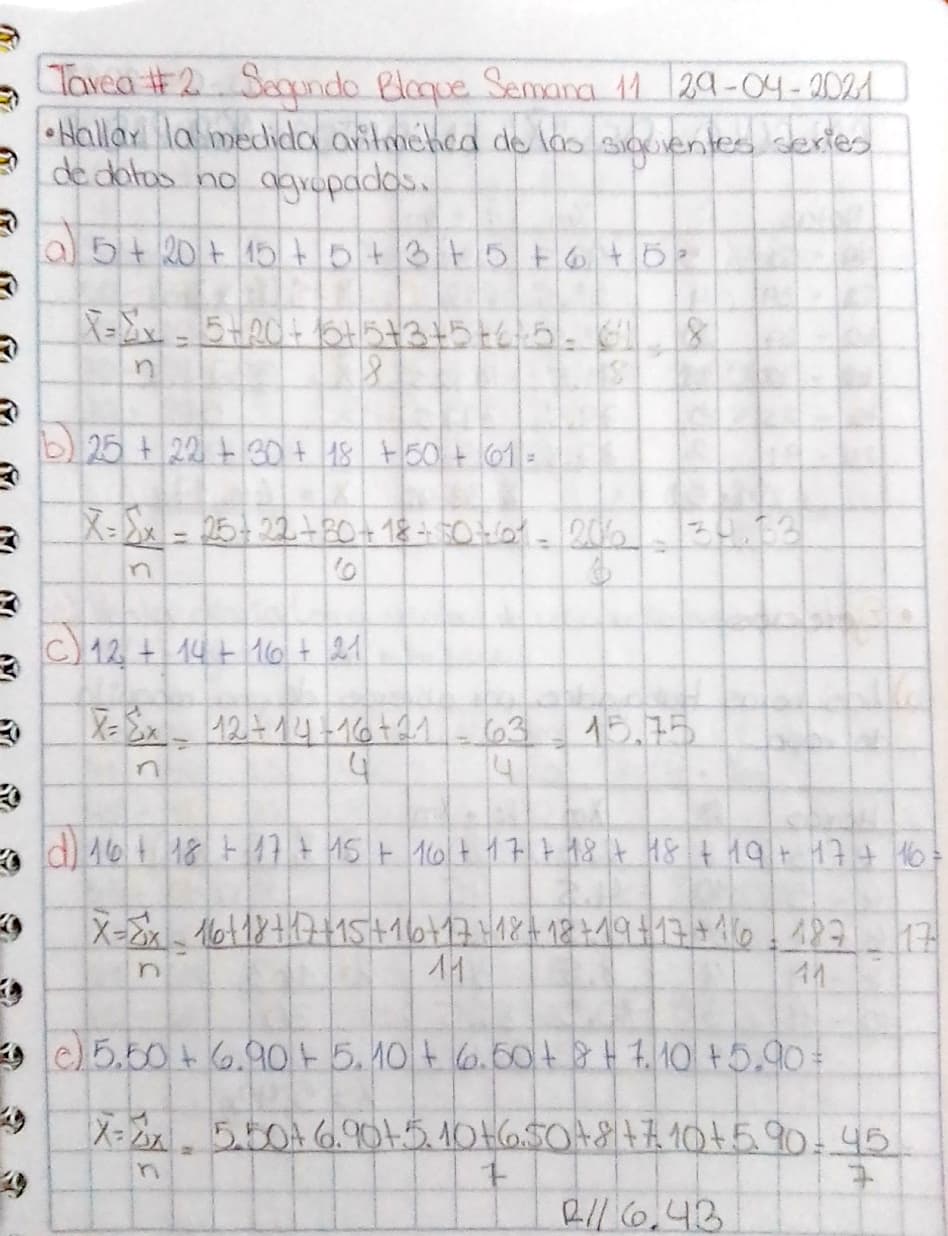 Tarea #2. Segundo Bloque Semana 11 29-04-2021
• Hallar la medida aritmética de las siguientes series
de datos no agrupados.
a) 5 + 20 + 15 + 5 + 3 + 5 + 6 + 5 =
x̄ = Σx/n = 5+20+15+5+3+5+6+5/8 = 64/8 = 8
b) 25 + 22 + 30 + 18 + 50 + 61 =
x̄ = Σx/n = 25+22+30+18+50+61/6 = 206/6 = 34.33
c) 12 + 14 + 16 + 21
x̄ = Σx/n = 12+14+16+21/4 = 63/4 = 15.75
d) 16 + 18 + 17 + 15 + 16 + 17 + 18 + 18 + 19 + 17 + 16 =
x̄ = Σx/n = 16+18+17+15+16+17+18+18+19+17+16/11 = 187/11 = 17
e) 5.50 + 6.90 + 5.10 + 6.50 + 8 + 7.10 + 5.90 =
x̄ = Σx/n = 5.50+6.90+5.10+6.50+8+7.10+5.90/7 = 45/7
R// 6.43